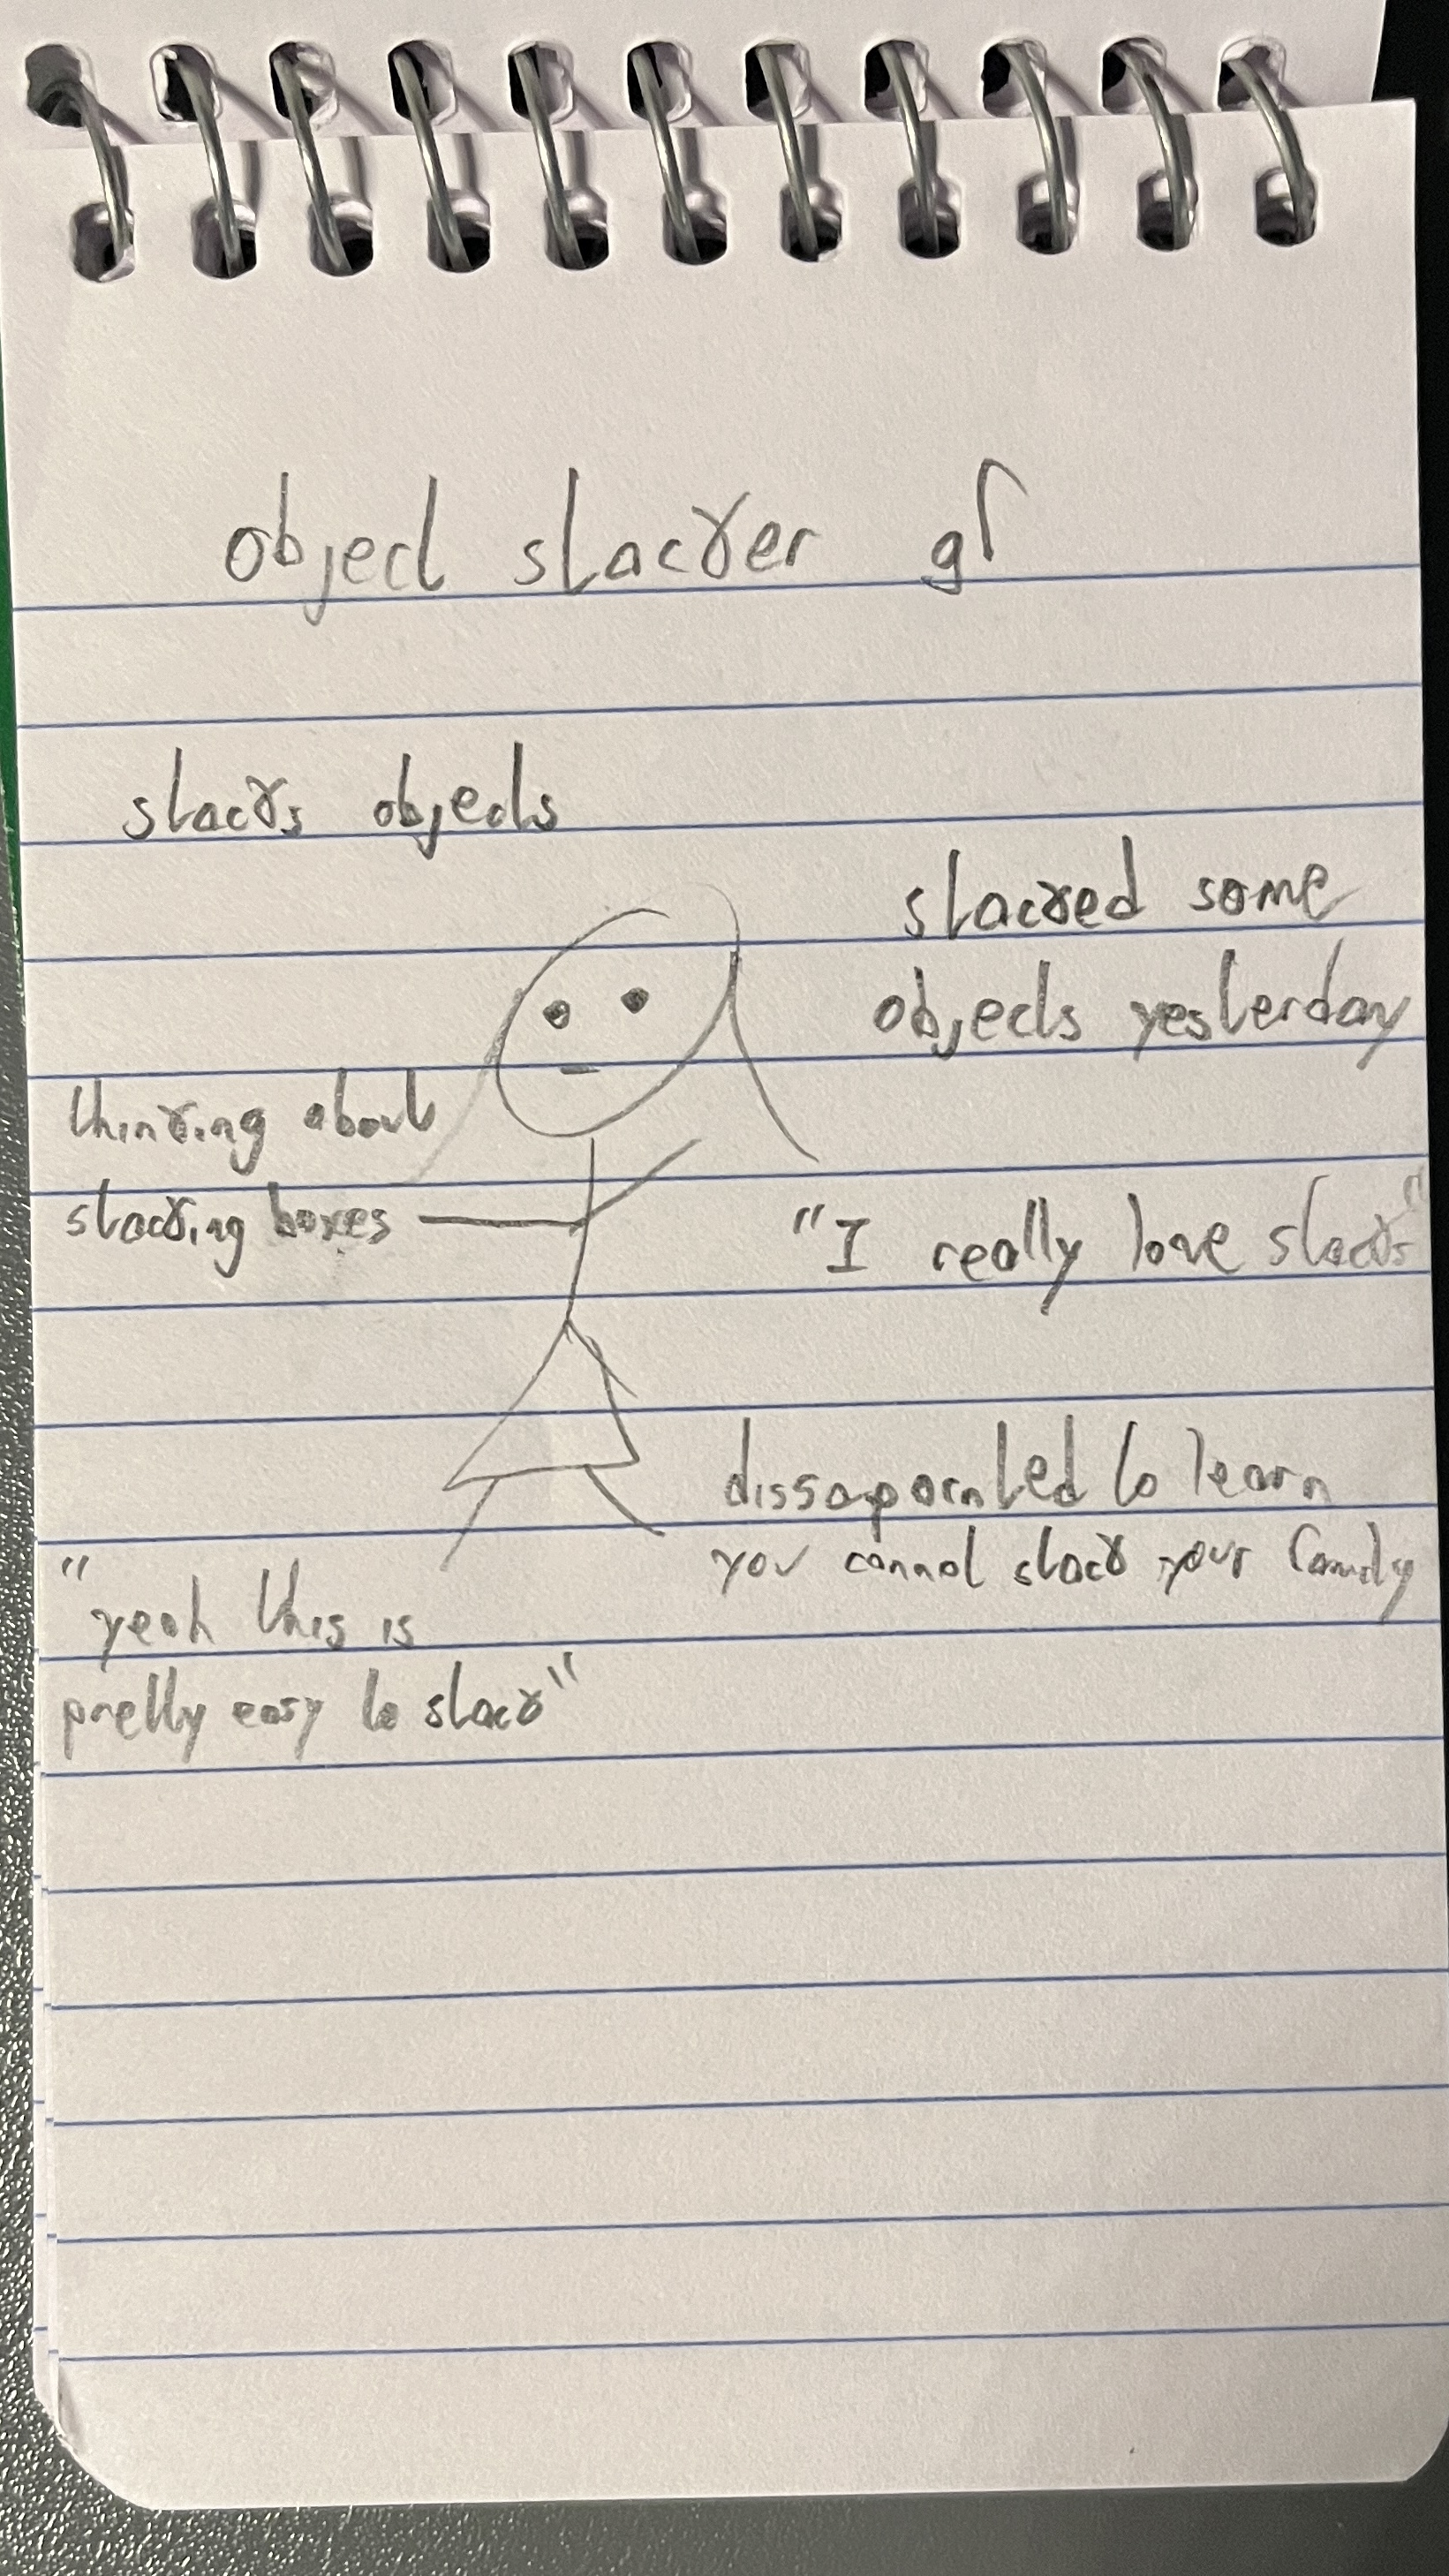 object stacker gf
stacks objects
stacked some
objects yesterday
thinking about
stacking boxes
"I really love stacks"
dissapointed to learn
you cannot stack your family
"yeah this is
pretty easy to stack"